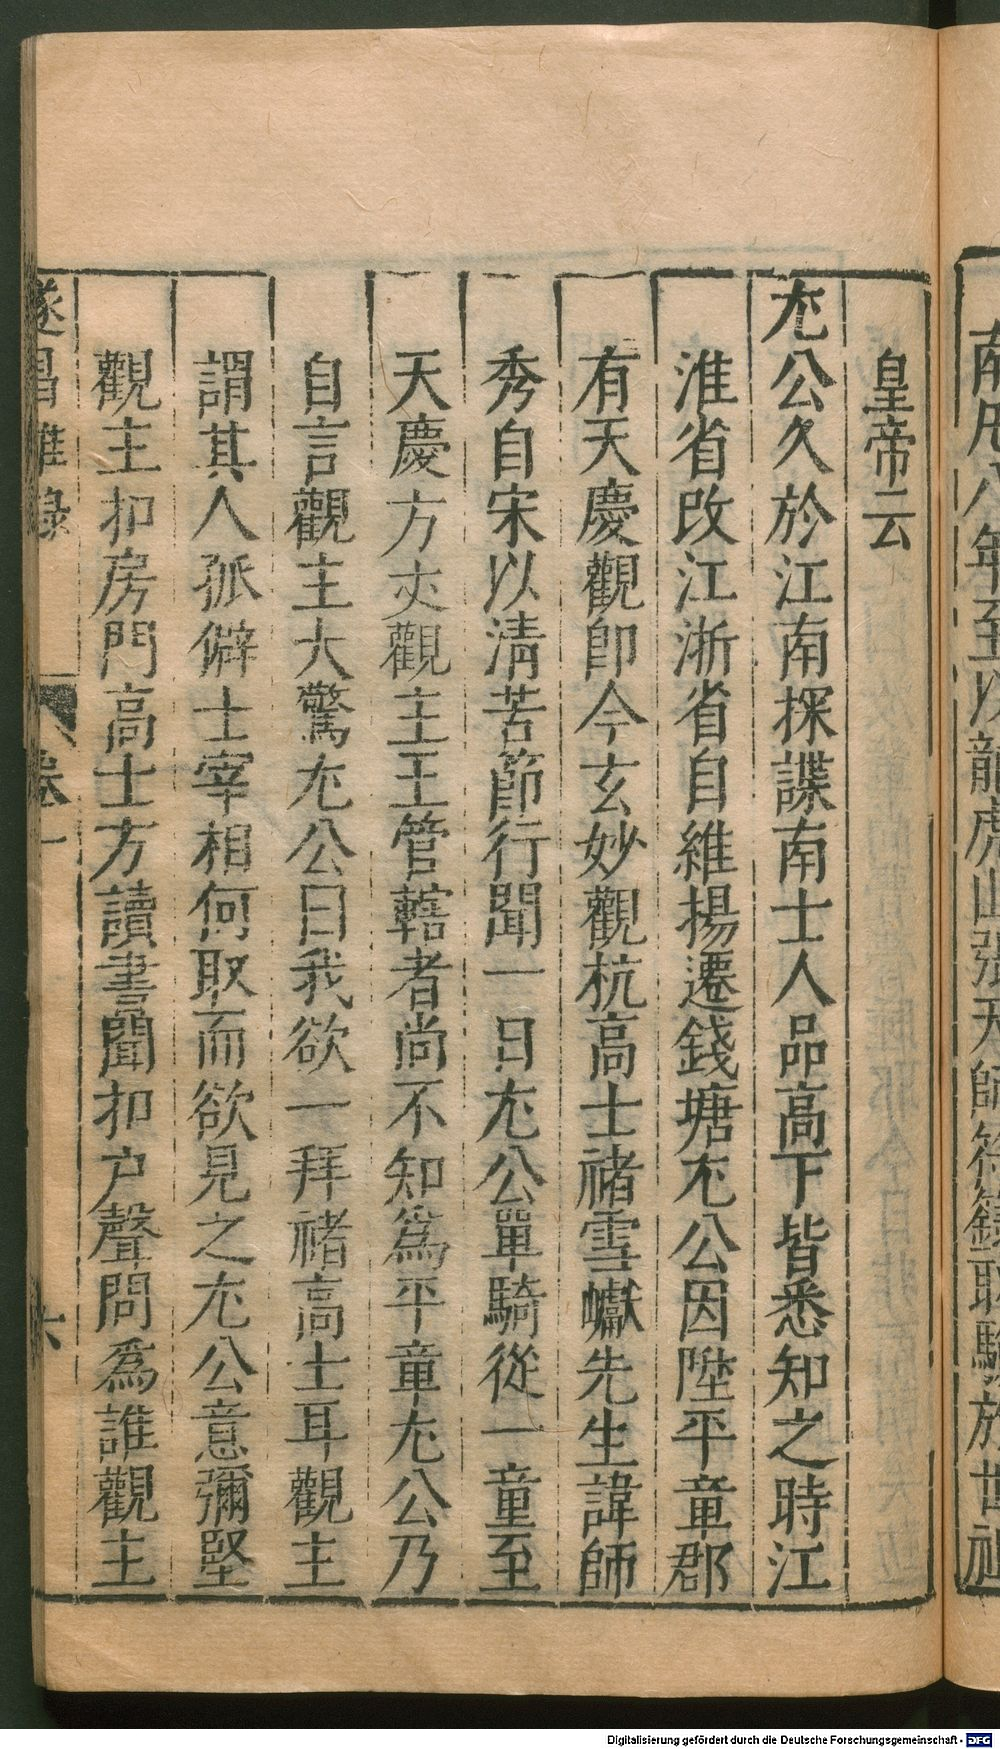 皇帝云
尢公久於江南探諜南士人品高下皆悉知之時江
淮省改江浙省自維揚遷錢塘尢公因陞平章郡
有天慶觀卽今玄妙觀杭高士褚雪巘先生諱師
秀自宋以淸苦節行聞一日尢公單騎從一童至
天慶方丈觀主王管轄者尚不知爲平章尢公乃
自言觀主大驚尢公曰我欲一拜褚高士耳觀主
謂其人孤僻士宰相何取而欲見之尢公意彌堅
觀主扣房門高士方讀書聞扣户聲問爲誰觀主
遂昌雜錄 卷一 六
Digitalisierung gefördert durch die Deutsche Forschungsgemeinschaft - DFG